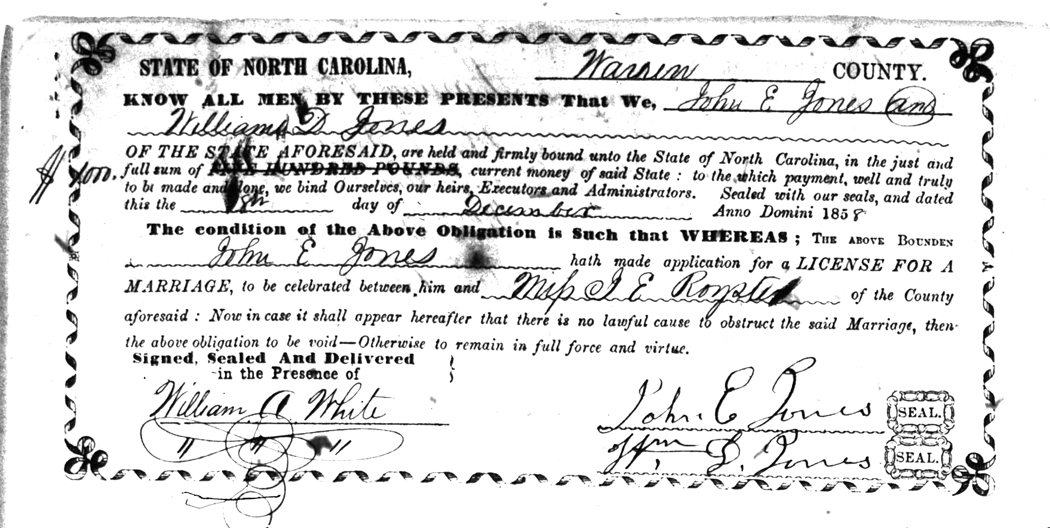 STATE OF NORTH CAROLINA, Warren COUNTY.
KNOW ALL MEN BY THESE PRESENTS That We, John E Jones and
William D Jones
OF THE STATE AFORESAID, are held and firmly bound unto the State of North Carolina, in the just and
full sum of FIVE HUNDRED POUNDS, current money of said State : to the which payment, well and truly
to be made and done, we bind Ourselves, our heirs, Executors and Administrators. Sealed with our seals, and dated
this the 8th day of December Anno Domini 1858
The condition of the Above Obligation is Such that WHEREAS ; THE ABOVE BOUNDEN
John E Jones hath made application for a LICENSE FOR A
MARRIAGE, to be celebrated between him and Miss I E Royster of the County
aforesaid : Now in case it shall appear hereafter that there is no lawful cause to obstruct the said Marriage, then
the above obligation to be void—Otherwise to remain in full force and virtue.
Signed, Sealed And Delivered
in the Presence of
William A White
" " "
John E Jones SEAL.
Wm D. Jones SEAL.